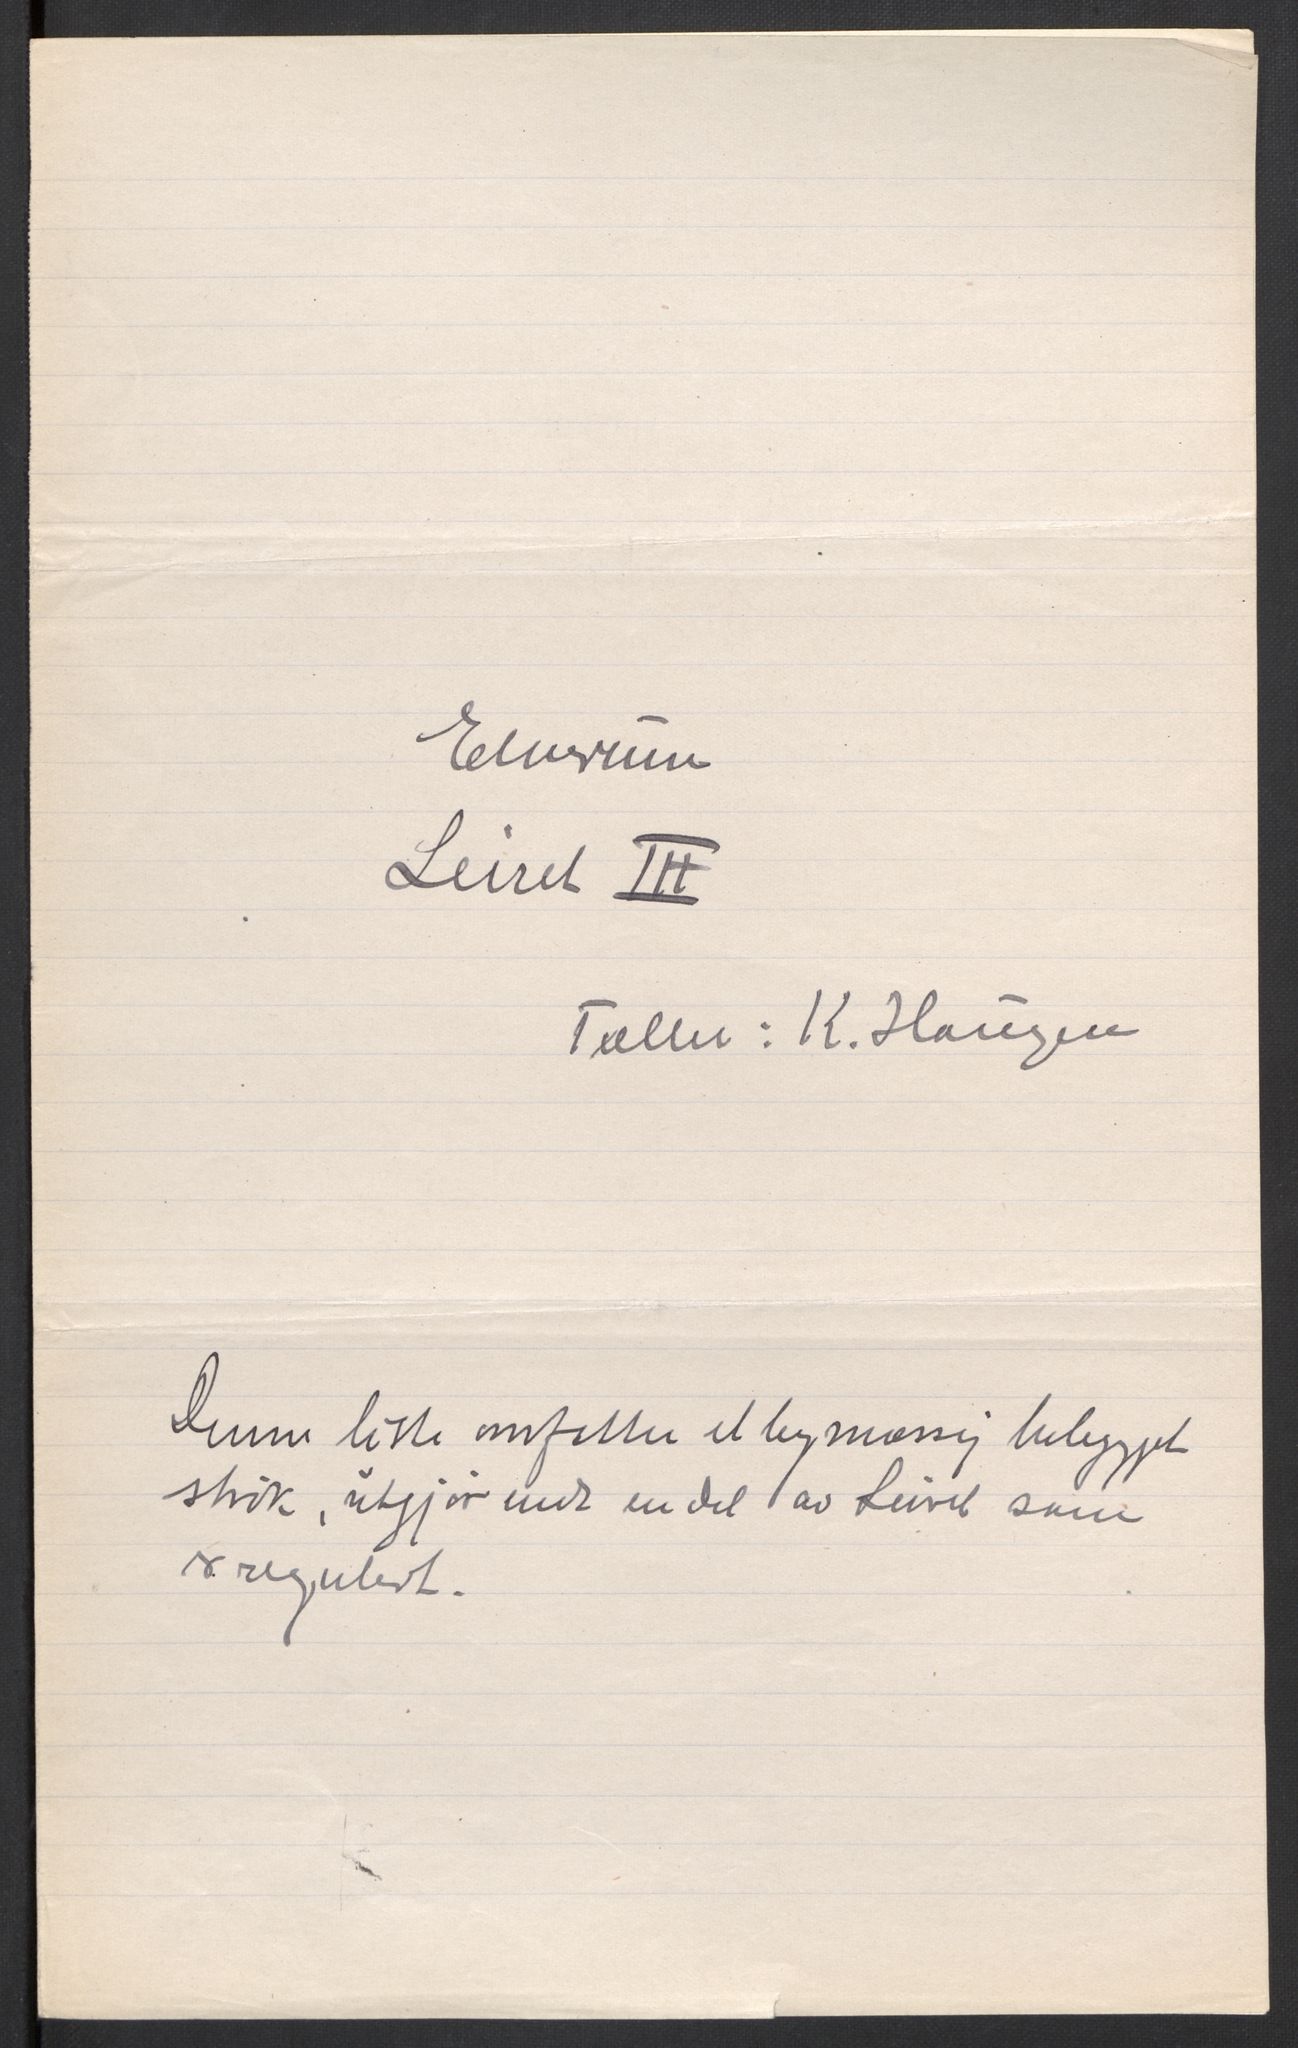 Elverum
Leiret III
Tæller: K. Haugen
Denne liste omfatter et bymæssig bebygget
strøk, utgjørende en del av Leiret som
er regulert.